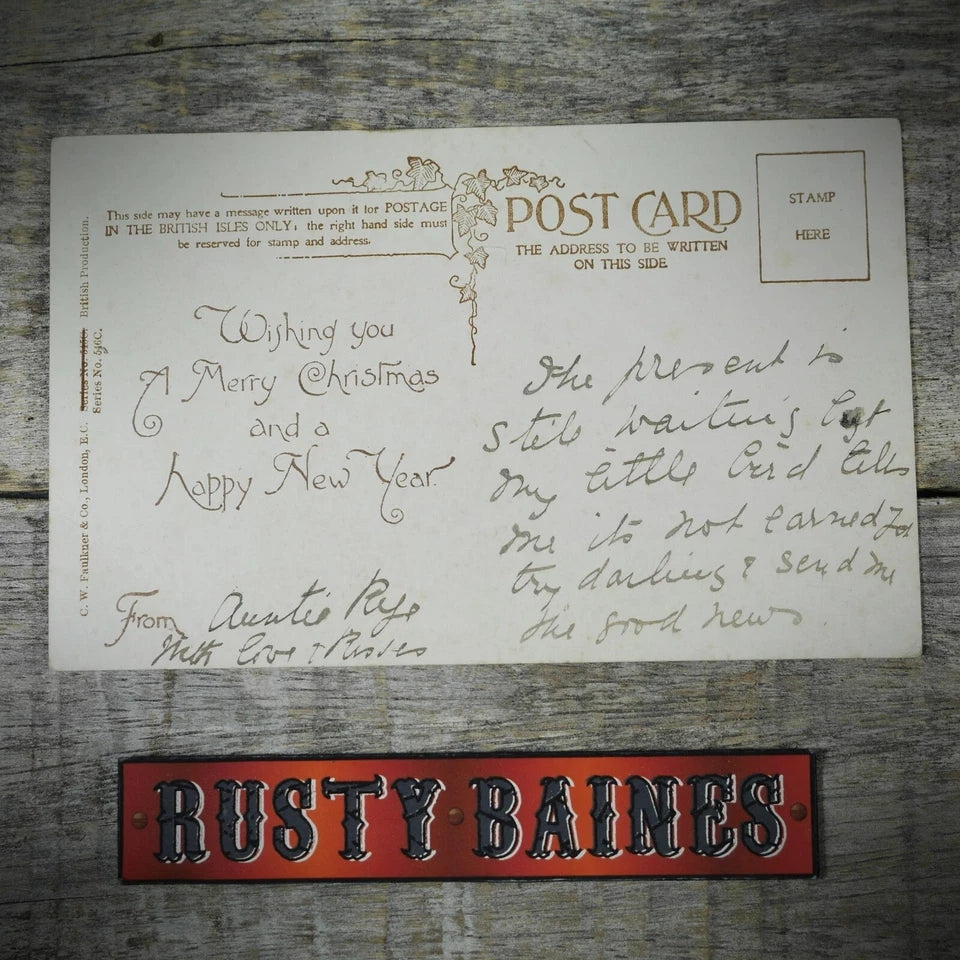 This side may have a message written upon it for POSTAGE
IN THE BRITISH ISLES ONLY; the right hand side must
be reserved for stamp and address.
POST CARD
THE ADDRESS TO BE WRITTEN
ON THIS SIDE
STAMP
HERE
C. W. Faulkner & Co., London, E.C. Series No. British Production.
Series No. 546C.
Wishing you
A Merry Christmas
and a
Happy New Year.
From Auntie
With love & Kisses
The present is
still waiting but
my little bird tells
me its not earned
try darling & send me
the good news
RUSTY BAINES